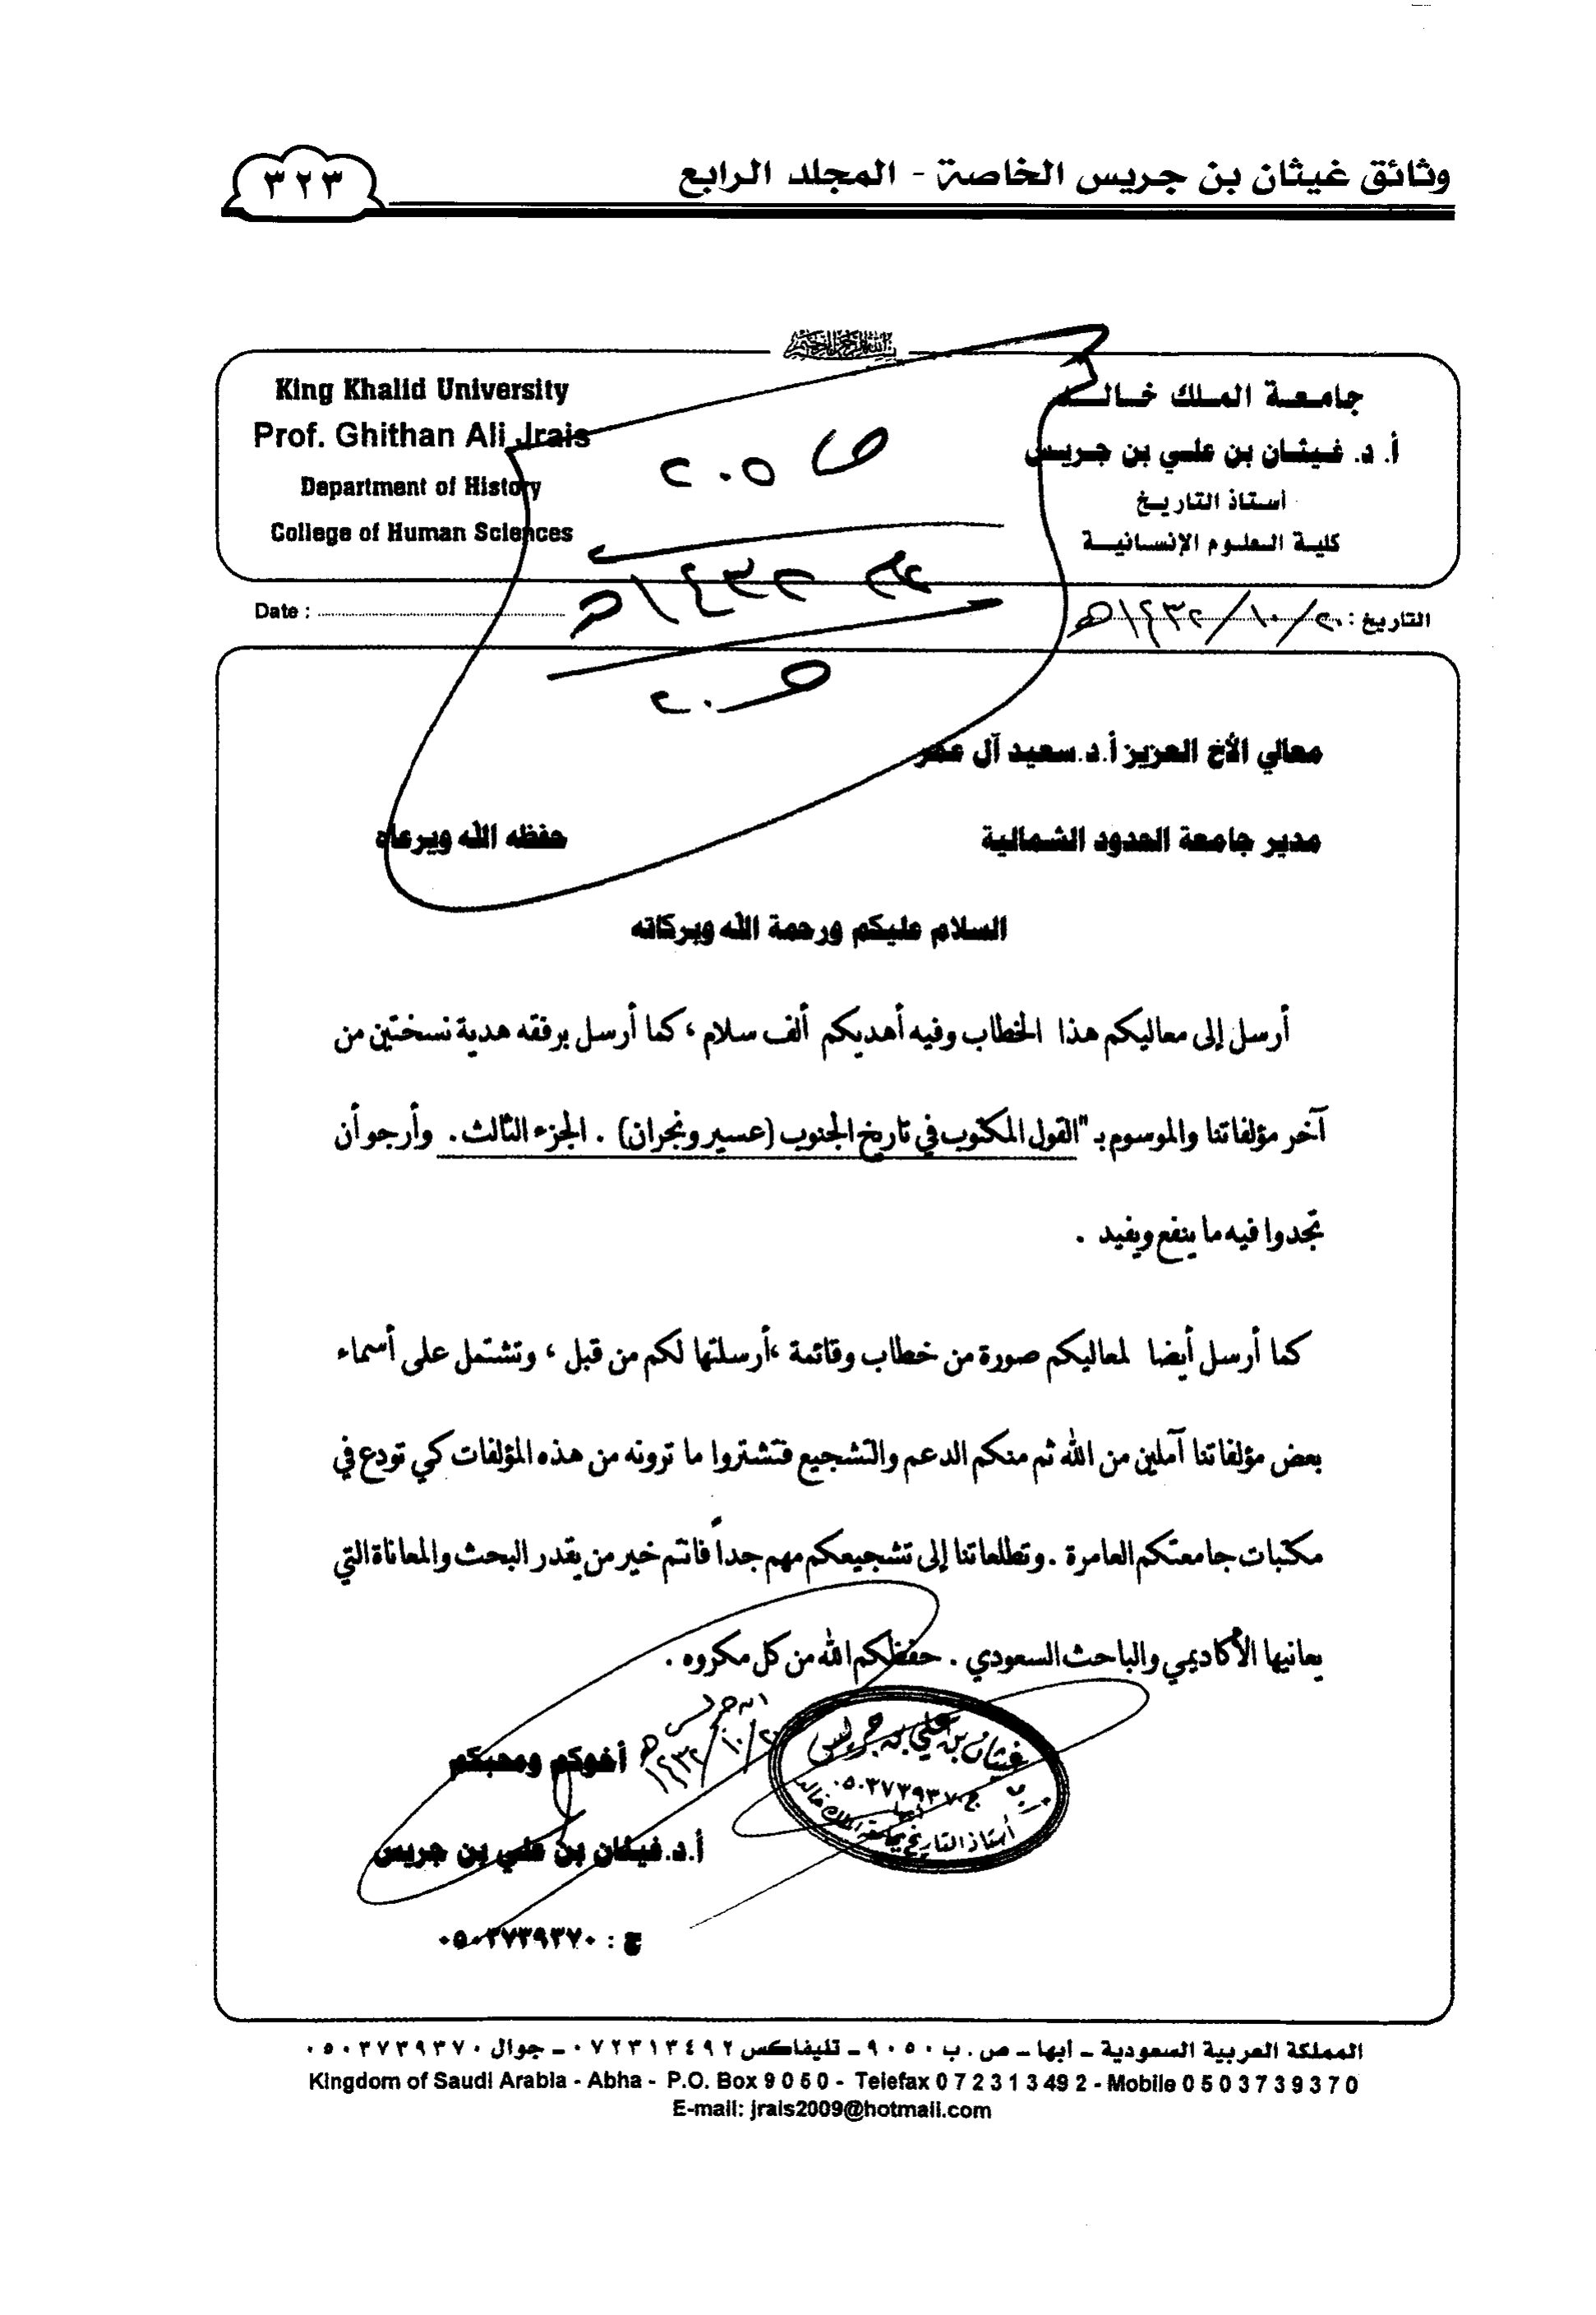 وثائق غيثان بن جريس الخاصة - المجلد الرابع
٣٢٣
جامعة الملك خالد
أ. د. غيثان بن علي بن جريس
أستاذ التاريخ
كلية العلوم الإنسانية
King Khalid University
Prof. Ghithan Ali Jrais
Department of History
College of Human Sciences
ص ٢٠٥
١٤٣٢هـ
ص ٢٠
التاريخ : ٢٠/١٠/١٤٣٢هـ
Date :
معالي الأخ العزيز أ.د.سعيد آل عمر
مدير جامعة الحدود الشمالية حفظه الله ويرعاه
السلام عليكم ورحمة الله وبركاته
أرسل إلى معاليكم هذا الخطاب وفيه أهديكم ألف سلام ، كما أرسل برفقه هدية نسختين من
آخر مؤلفاتنا والموسوم بـ "القول المكتوب في تاريخ الجنوب (عسير ونجران) . الجزء الثالث . وأرجو أن
تجدوا فيه ما ينفع ويفيد .
كما أرسل أيضا لمعاليكم صورة من خطاب وقائمة ،أرسلتها لكم من قبل ، وتشتمل على أسماء
بعض مؤلفاتنا آملين من الله ثم منكم الدعم والتشجيع فتشتروا ما ترونه من هذه المؤلفات كي تودع في
مكتبات جامعتكم العامرة . وتطلعاتنا إلى تشجيعكم مهم جداً فانتم خير من يقدر البحث والمعاناة التي
يعانيها الأكاديمي والباحث السعودي . حفظكم الله من كل مكروه .
أخوكم ومحبكم
ابن جريس
٢٠/١٠/١٤٣٢هـ
غيثان بن علي بن جريس
ج ٠٥٠٣٧٣٩٣٧٠
أبها
أستاذ التاريخ بجامعة الملك خالد
أ.د.غيثان بن علي بن جريس
ج : ٠٥٠٣٧٣٩٣٧٠
المملكة العربية السعودية - أبها - ص . ب ٩٠٥٠ - تليفاكس ٠٧٢٣١٣٤٩٢ - جوال ٠٥٠٣٧٣٩٣٧٠
Kingdom of Saudi Arabia - Abha - P.O. Box 9 0 5 0 - Telefax 0 7 2 3 1 3 49 2 - Mobile 0 5 0 3 7 3 9 3 7 0
E-mail: jrais2009@hotmail.com